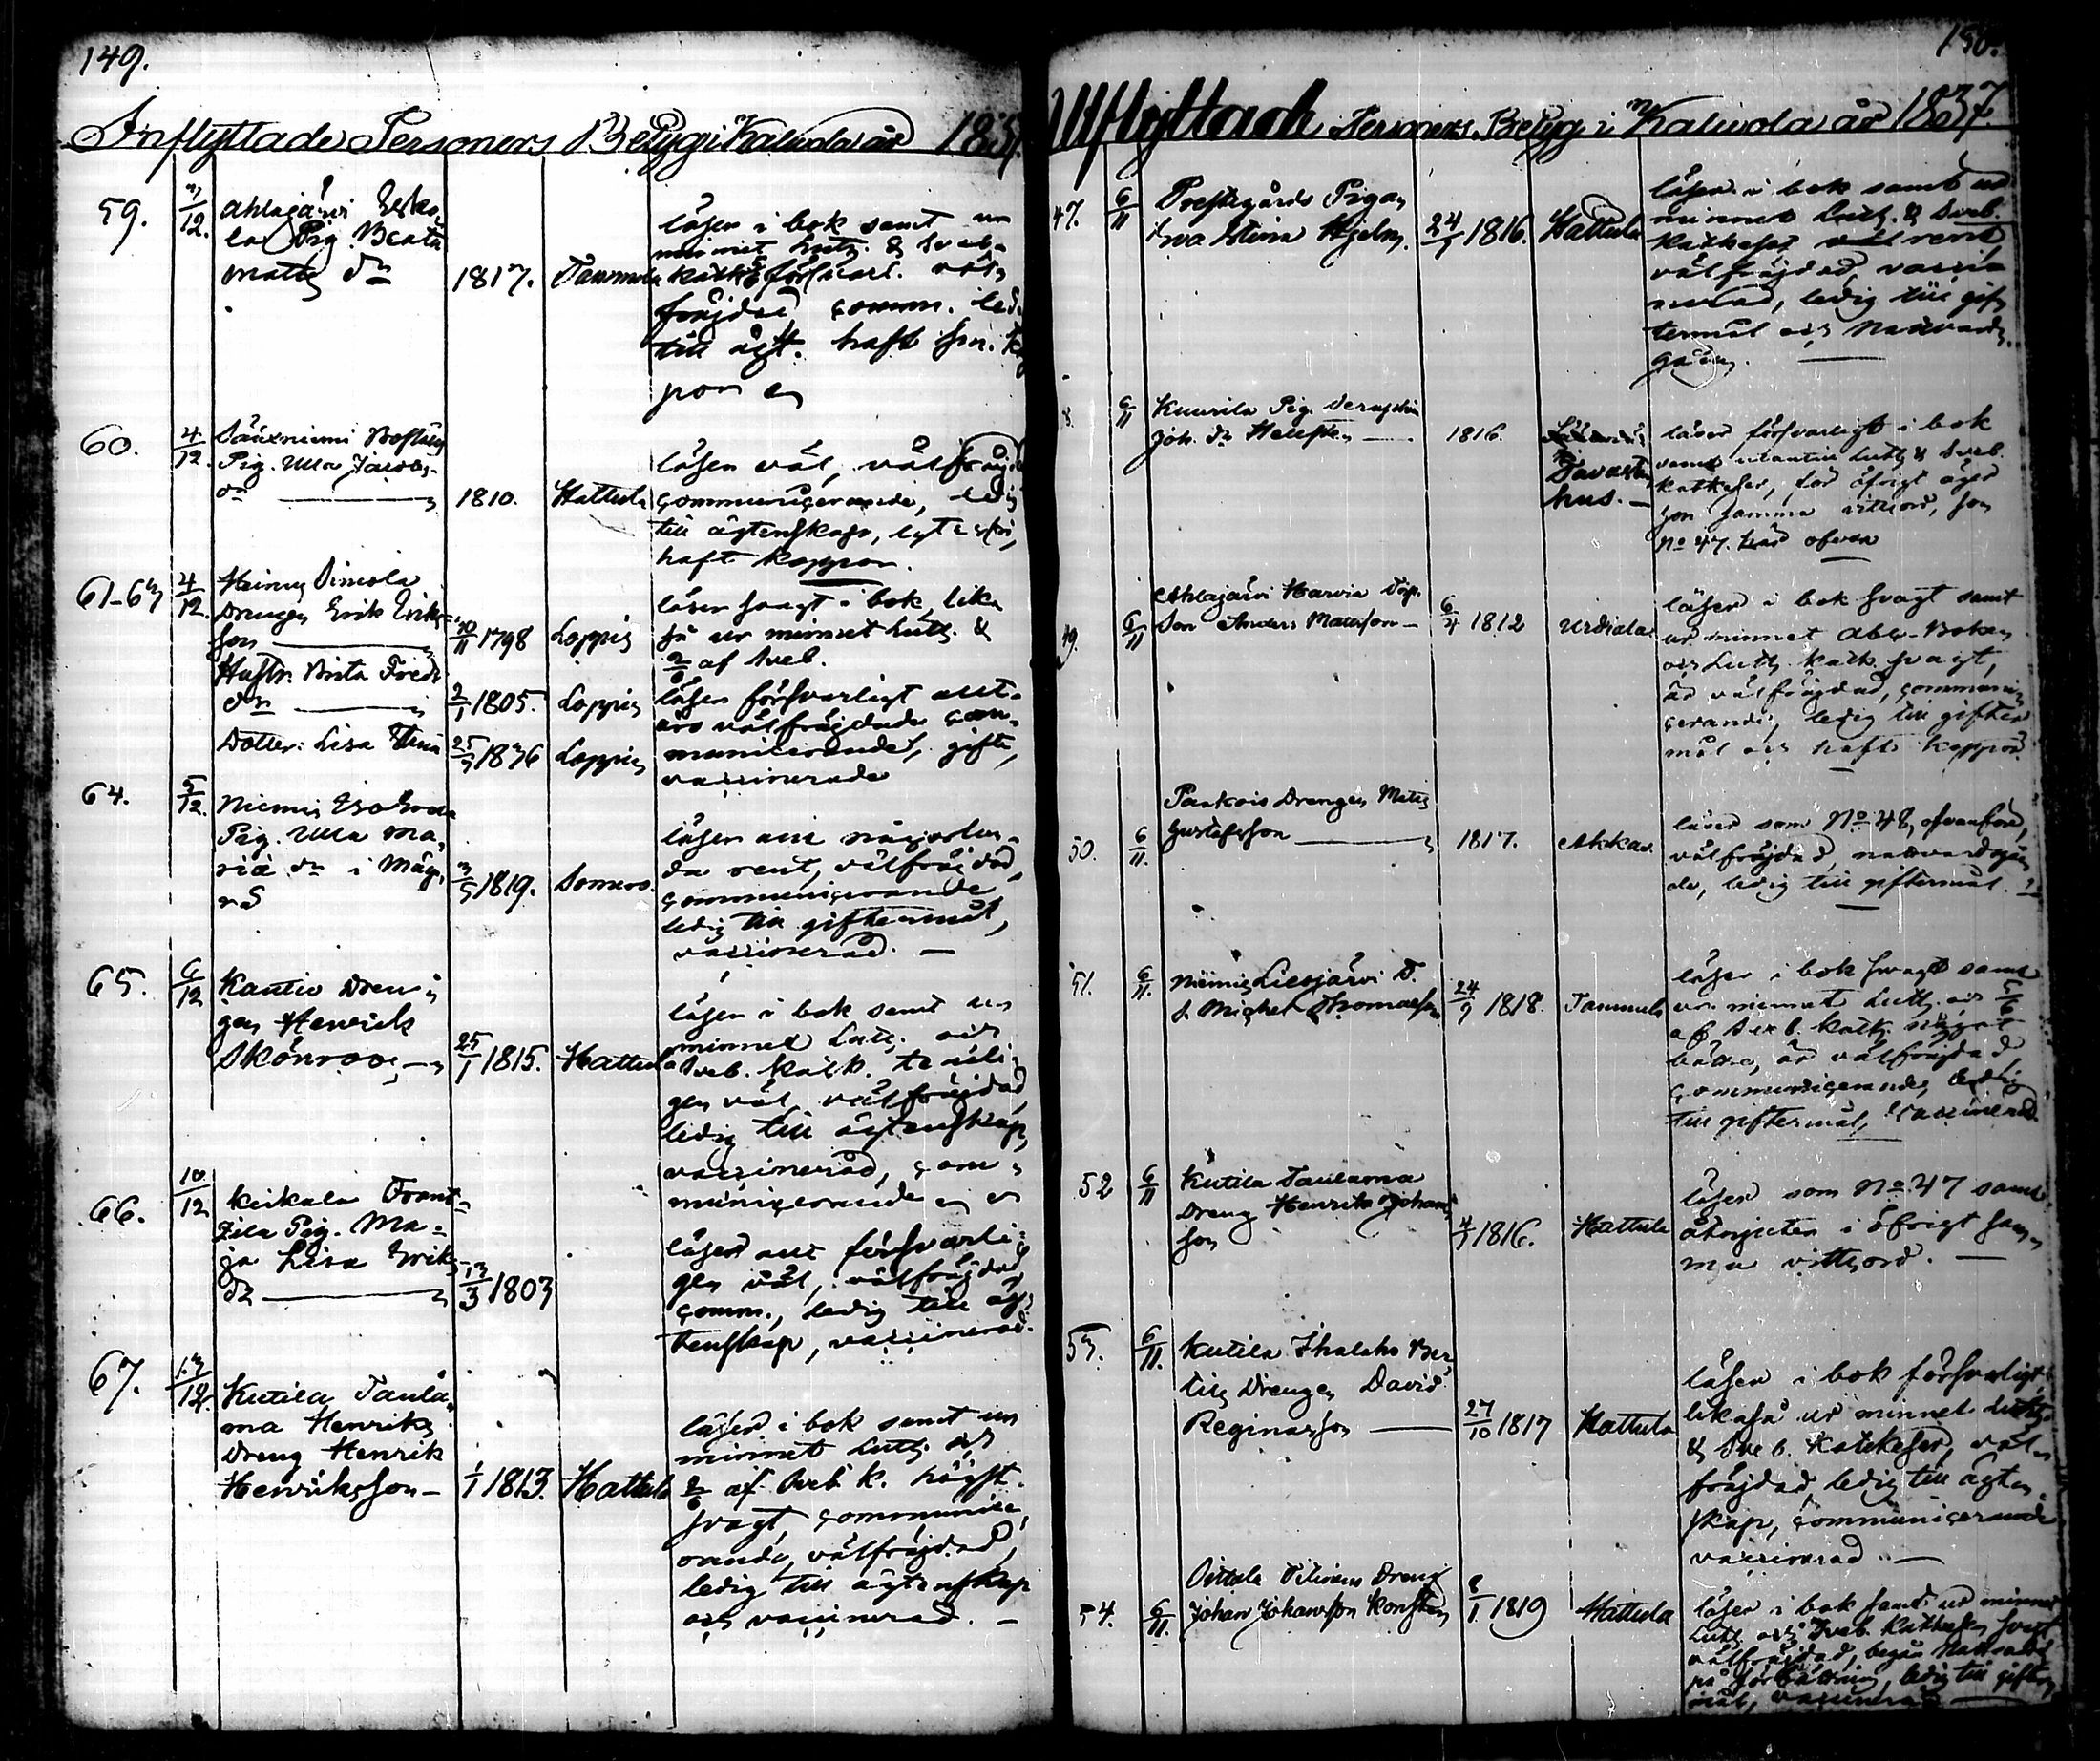 149.
Inflyttade Personers Betyg i Kalvola år 183
59.
7/12.
Ahlajärvi Esko,
la Pig. Beata
Matts dr
1817.
Tammela
läser i bok samt ur
minnet Luth. & Sveb.
försvarl. väl
fräjdad comm. led.
till ägt. haft
60.
4/12.
Sääxniemi
Pig. Ulla Jacobs
dr
1810.
Hattula
läser väl, välfräjd
communicerande, ledig
till ägtenskap,
haft koppor.
61-63
4/12.
Heinus
Drengen Erik Eriks
son
30/11 1798
Loppis
läser svagt i bok, lika
så ur minnet Luth. &
2/6 af Sveb.
Hustr. Brita Fredr.
dr
2/1 1805.
Loppis
läser försvarligt allt.
äro välfräjdade com
municerande, gifta,
vaccinerade
Dotter: Lisa Stina
25/3 1836
Loppis
64.
5/12.
Niemis
Pig. Ulla Ma,
ria dr i
3/5 1819.
Somero.
läser allt någorlun
da rent, välfräjdad,
communicerande
ledig till giftermål,
vaccinerad.
65.
6/12
Kanto Dren
gen Henrick
Skönroos
25/1 1815.
Hattula
läser i bok samt ur
minnet Luth. och
Sveb. Kat k. temli
gen väl, välfräjdad,
ledig till ägtenskap,
vaccinerad, com
municerande
66.
10/12
Keikala Frant
zila Pig. Ma=
ja Lisa Eriks
dr
13/3 1803
läser allt försvarli
gen väl, välfräjdad,
comm., ledig till äg
tenskap, vaccinerad.
67.
13/12
Kutila Taula
ma Henriks
Dreng Henrik
Henriksson
1/1 1813.
Hattula
läser i bok samt ur
minnet Luth. och
2/6 af Sveb. K. högst
svagt, communice
rande, välfräjdad,
ledig till ägtenskap
och vaccinerad.
150.
Utflyttade Personers Betyg i Kalvola år 1837.
47.
6/11
Prestegårds Pigan
Eva Stina Hjelm,
1816.
Hattula
läser i bok samt ur
minnet Luth. & Sveb.
Katheser väl rent,
välfräjdad, vacci
nerad, ledig till gif
termål och Nattvards
gång.
8.
6/11
Kuurila Pig.
Joh. dr Hellsten
1816.
Tavaste
hus.
läser försvarligt i bok
samt utantill Luth. & Sveb.
katkeser, för öfrigt äger
hon samma vittsord, som
No 47. här ofvan
49.
6/11
Ahlajärvi Harvia Torp.
Son Anders Mattsson
6/4 1812
Urdiala
läser i bok svagt samt
ur minnet Abc-Boken
och Luth. kath. svagt,
är välfräjdad, communi
cerande, ledig till gifter
mål och haft koppor.
50.
6/11.
Drengen Matts
Gustafsson
1817.
Akkas
läser som No 48, ofvanföre,
välfräjdad, nattvardsgån
de, ledig till giftermål.
51.
6/11.
Niemis Liesjärvi T.
S. Michel Thomasson
24/9 1818.
Tammela
läser i bok svagt samt
ur minnet Luth. och 5/6
af Sveb. kath. något
bättre, är välfräjdad,
communicerande, ledig
till giftermål, vaccinerad.
52
6/11
Kutila Taulama
Dreng Henrik Johans
son
4/7 1816.
Hattula
läser som No 47 samt
åtnjuter i öfrigt sam
ma vittsord.
53.
6/11.
Kutila Ihalaho Ber
tils Drengen David
Reginasson
27/10 1817
Hattula
läser i bok försvarligt
likaså ur minnet Luth.
& Sveb. Katekeser, väl
fräjdad, ledig till ägten
skap, communicerande
vaccinerad.
54.
6/11.
Oittala Dreng
Johan Johansson Konsten
8/1 1819
Hattula
läser i bok samt ur minnet
Luth. och Sveb. Katkeser svagt
välfräjdad, begår Nattvard
på förbättring, ledig till gifter
mål, vaccinerad